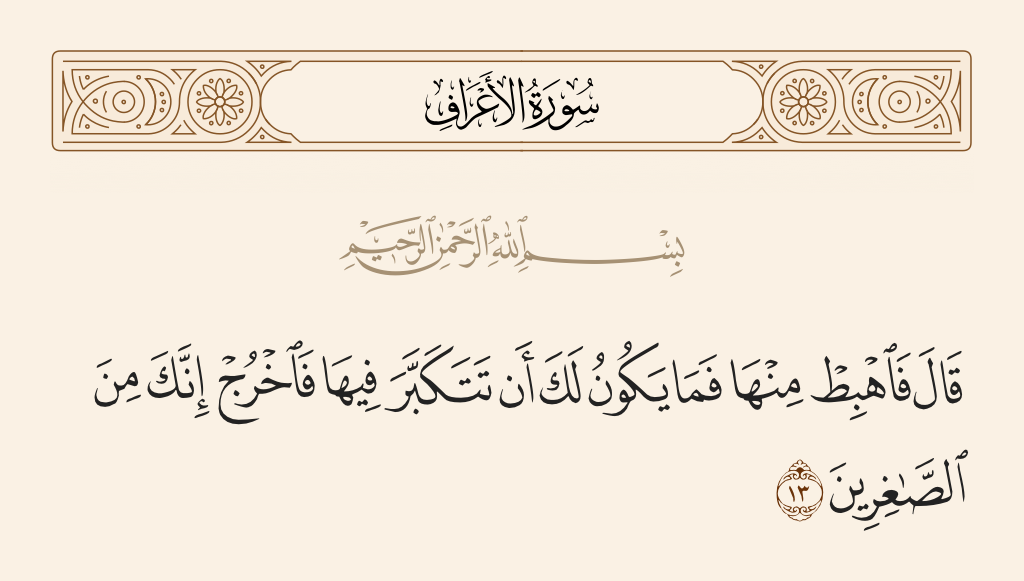 سُورَةُ الأَعْرَافِ
بِسْمِ ٱللَّهِ ٱلرَّحْمَٰنِ ٱلرَّحِيمِ
قَالَ فَٱهْبِطْ مِنْهَا فَمَا يَكُونُ لَكَ أَن تَتَكَبَّرَ فِيهَا فَٱخْرُجْ إِنَّكَ مِنَ
ٱلصَّٰغِرِينَ ١٣